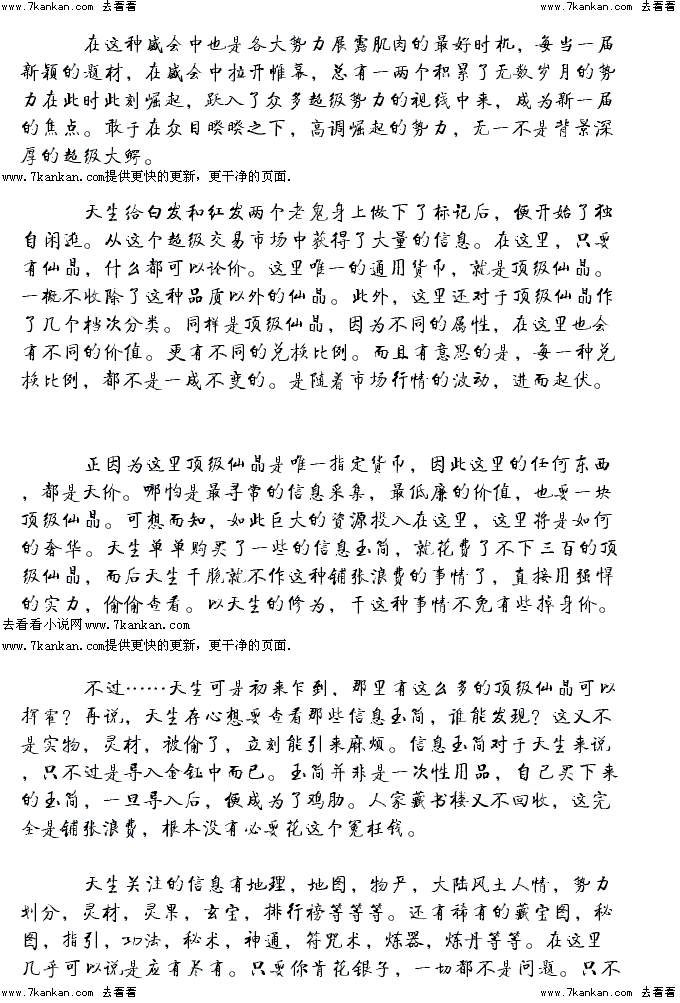 www.7kankan.com 去看看 www.7kankan.com 去看看
在这种盛会中也是各大势力展露肌肉的最好时机，每当一届
新颖的题材，在盛会中拉开帷幕，总有一两个积累了无数岁月的势
力在此时此刻崛起，跃入了众多超级势力的视线中来，成为新一届
的焦点。敢于在众目睽睽之下，高调崛起的势力，无一不是背景深
厚的超级大鳄。
www.7kankan.com提供更快的更新，更干净的页面.
天生给白发和红发两个老鬼身上做下了标记后，便开始了独
自闲逛。从这个超级交易市场中获得了大量的信息。在这里，只要
有仙晶，什么都可以论价。这里唯一的通用货币，就是顶级仙晶。
一概不收除了这种品质以外的仙晶。此外，这里还对于顶级仙晶作
了几个档次分类。同样是顶级仙晶，因为不同的属性，在这里也会
有不同的价值。更有不同的兑换比例。而且有意思的是，每一种兑
换比例，都不是一成不变的。是随着市场行情的波动，进而起伏。
正因为这里顶级仙晶是唯一指定货币，因此这里的任何东西
，都是天价。哪怕是最寻常的信息采集，最低廉的价值，也要一块
顶级仙晶。可想而知，如此巨大的资源投入在这里，这里将是如何
的奢华。天生单单购买了一些的信息玉简，就花费了不下三百的顶
级仙晶，而后天生干脆就不作这种铺张浪费的事情了，直接用强悍
的实力，偷偷查看。以天生的修为，干这种事情不免有些掉身价。
去看看小说网www.7kankan.com
www.7kankan.com提供更快的更新，更干净的页面.
不过……天生可是初来乍到，那里有这么多的顶级仙晶可以
挥霍？再说，天生存心想要查看那些信息玉简，谁能发现？这又不
是实物，灵材，被偷了，立刻能引来麻烦。信息玉简对于天生来说
，只不过是导入金钲中而已。玉简并非是一次性用品，自己买下来
的玉简，一旦导入后，便成为了鸡肋。人家藏书楼又不回收，这完
全是铺张浪费，根本没有必要花这个冤枉钱。
天生关注的信息有地理，地图，物产，大陆风土人情，势力
划分，灵材，灵果，玄宝，排行榜等等等。还有稀有的藏宝图，秘
图，指引，功法，秘术，神通，符咒术，炼器，炼丹等等。在这里
几乎可以说是应有尽有。只要你肯花银子，一切都不是问题。只不
www.7kankan.com 去看看 www.7kankan.com 去看看